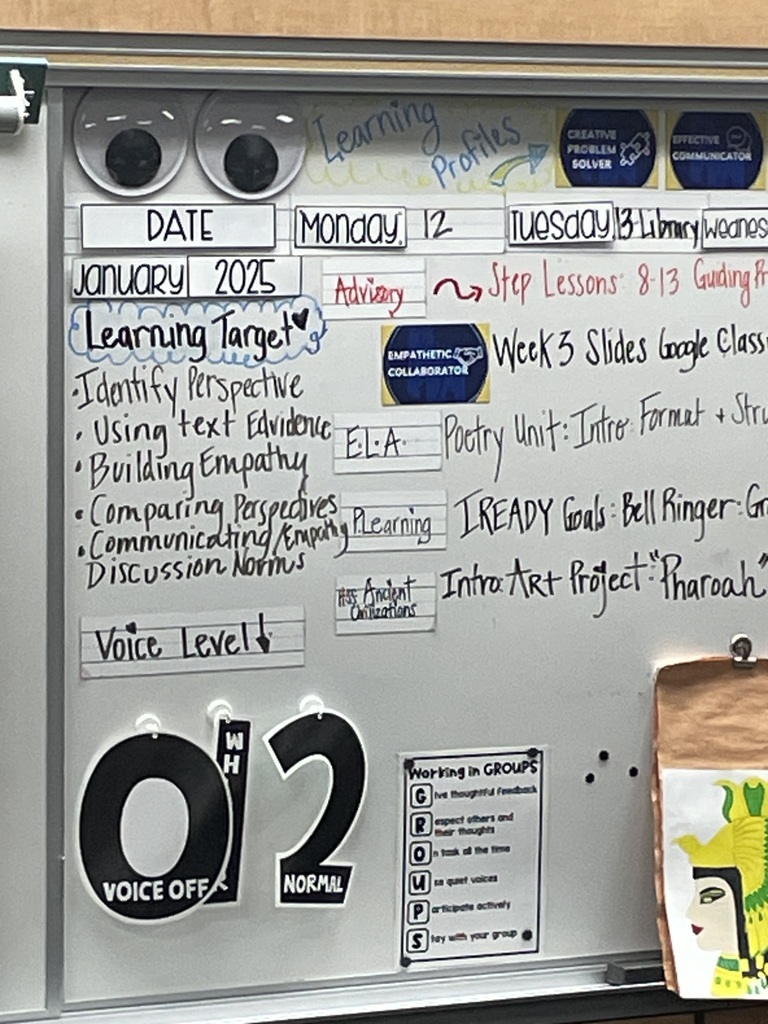 Learning
Profiles
CREATIVE
PROBLEM
SOLVER
EFFECTIVE
COMMUNICATOR
DATE
Monday 12
Tuesday 13 Library
January 2025
Advisory
Step Lessons: 8-13 Guiding
Learning Target
EMPATHETIC
COLLABORATOR
Week 3 Slides Google
• Identify Perspective
• Using text Edvidence
E.L.A.
Poetry Unit: Intro: Format +
• Building Empathy
• Comparing Perspectives
PLearning
IREADY Goals: Bell Ringer:
• Communicating/Empathy
Discussion Norms
HSS Ancient
Civilizations
Intro: ART Project: "Pharoah"
Voice Level ↓
0
VOICE OFF
WH
2
NORMAL
Working in GROUPS
Give thoughtful feedback
Respect others and
their thoughts
On task all the time
Use quiet voices
Participate actively
Stay with your group